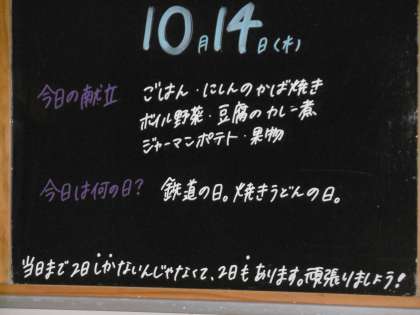 10月14日(木)
今日の献立 ごはん・にしんのかば焼き
ボイル野菜・豆腐のカレー煮
ジャーマンポテト・果物
今日は何の日? 鉄道の日。焼きうどんの日。
当日まで2日しかないんじゃなくて、2日もあります。頑張りましょう!